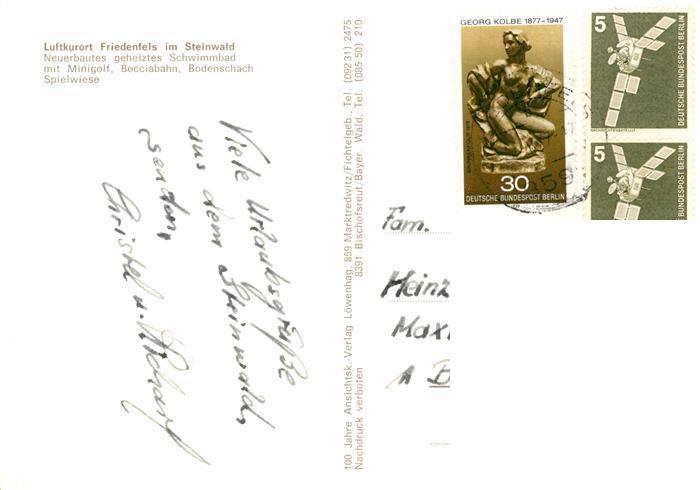 Luftkurort Friedenfels im Steinwald
Neuerbautes geheiztes Schwimmbad
mit Minigolf, Bocciabahn, Bodenschach
Spielwiese
Viele Urlaubsgrüße
aus dem Steinwald,
senden,
Christel u.
100 Jahre Ansichtsk.-Verlag Löwenhag, 859 Marktredwitz/Fichtelgeb., Tel. (092 31) 2475
8391 Bischofsreut/Bayer. Wald, Tel. (085 50) 210
Nachdruck verboten
GEORG KOLBE 1877-1947
30
DEUTSCHE BUNDESPOST BERLIN
5
DEUTSCHE BUNDESPOST BERLIN
NACHRICHTENSATELLIT
5
DEUTSCHE BUNDESPOST BERLIN
59
Fam.
Heinz
Maxi
1 B